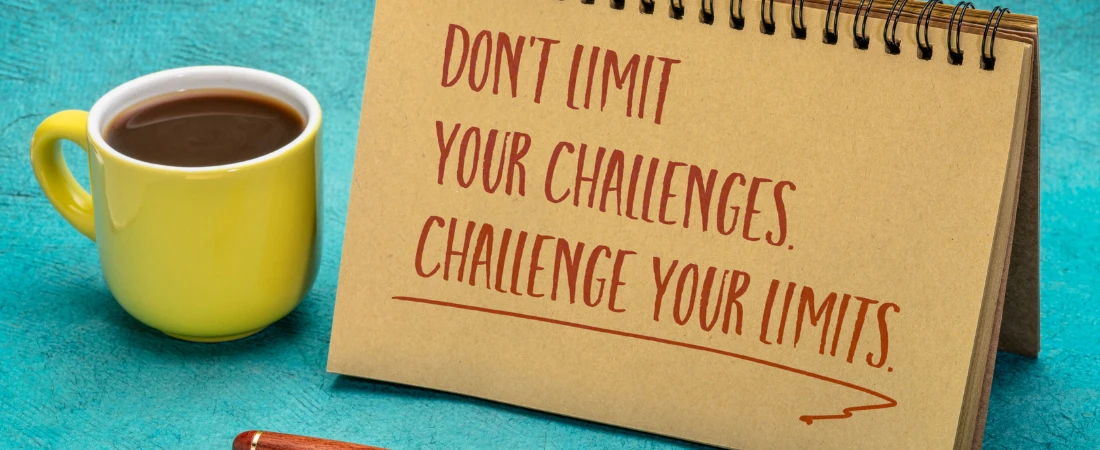 DON'T LIMIT
YOUR CHALLENGES.
CHALLENGE YOUR LIMITS.